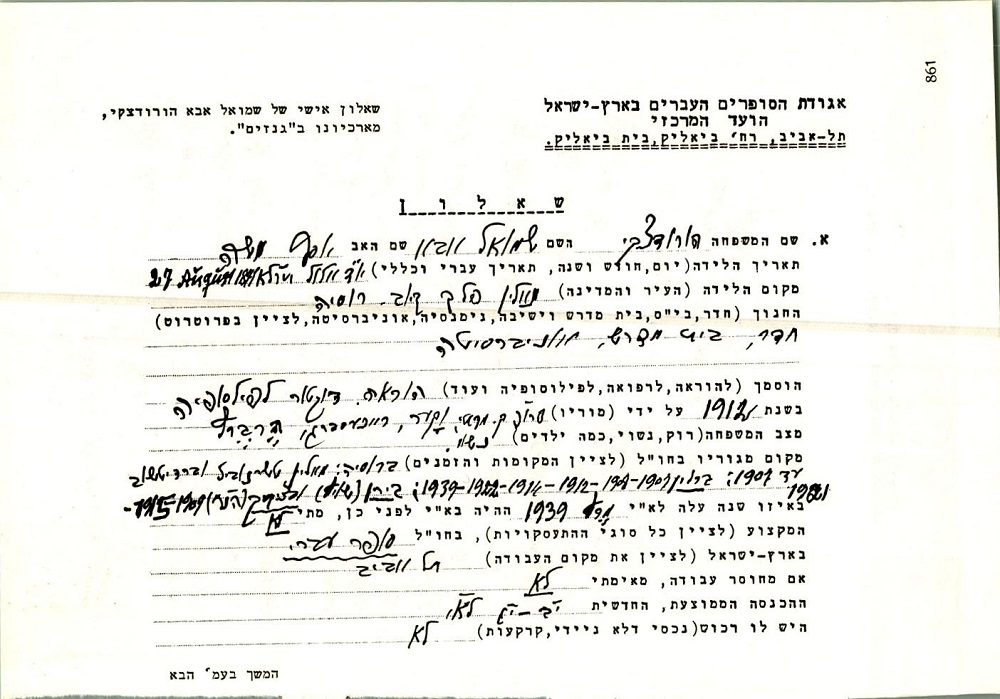 861
אגודת הסופרים העברים בארץ-ישראל
הועד המרכזי
תל-אביב, רח' ביאליק, בית ביאליק.
שאלון אישי של שמואל אבא הורודצקי,
מארכיונו ב"גנזים".
ש א ל ו ן
א. שם המשפחה הורודצקי השם שמואל אבא שם האב יוסף משה
תאריך הלידה (יום, חודש ושנה, תאריך עברי וכללי) 27 August
מקום הלידה (העיר והמדינה) מאלין פלך קיוב. רוסיה
החנוך (חדר, בי"ס, בית מדרש וישיבה, גימנסיה, אוניברסיטה, לציין בפרוטרוט)
חדר, בית מדרש, אוניברסיטה
הוסמך (להוראה, לרפואה, לפילוסופיה ועוד) הוראה. דוקטור לפילוסופיה
בשנת 1912 על ידי (מוריו)
מצב המשפחה (רוק, נשוי, כמה ילדים) נשוי
מקום מגוריו בחו"ל (לציין המקומות והזמנים) ברוסיה: מאלין
עד 1907; ברלין
באיזו שנה עלה לא"י 1939 ההיה בא"י לפני כן, מתי לא
המקצוע (לציין כל סוגי ההתעסקויות), בחו"ל סופר עברי.
בארץ-ישראל (לציין את מקום העבודה) תל אביב
אם מחוסר עבודה, מאימתי לא
ההכנסה הממוצעת, החדשית
היש לו רכוש (נכסי דלא ניידי, קרקעות) לא
המשך בעמ' הבא